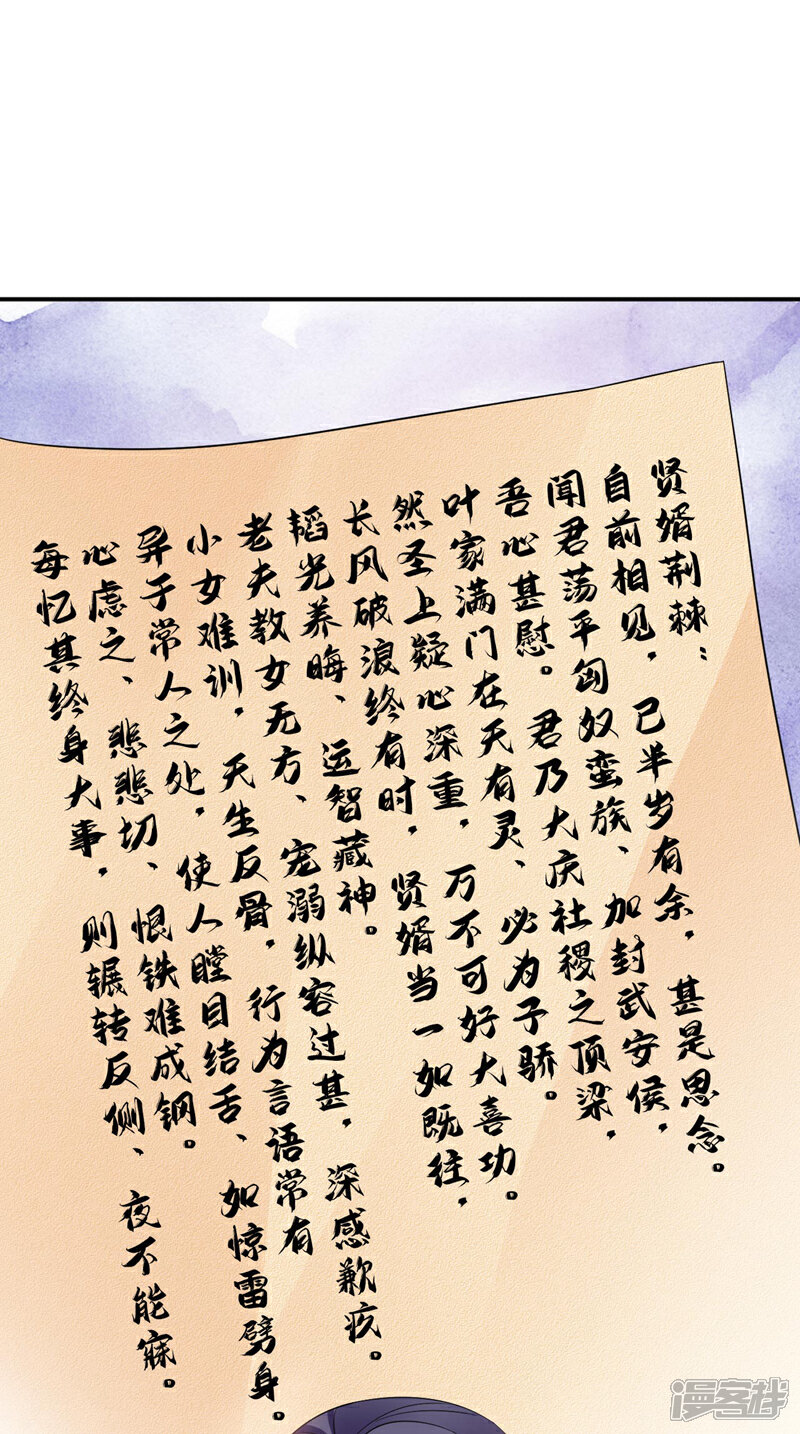 贤婿荆棘：
自前相见，已半岁有余，甚是思念。
闻君荡平匈奴蛮族、加封武安侯，
吾心甚慰。君乃大庆社稷之顶梁，
叶家满门在天有灵、必为子骄。
然圣上疑心深重，万不可好大喜功。
长风破浪终有时，贤婿当一如既往，
韬光养晦、运智藏神。
老夫教女无方、宠溺纵容过甚，深感歉疚。
小女难训，天生反骨，行为言语常有
异于常人之处，使人瞠目结舌、如惊雷劈身。
心虑之、悲悲切、恨铁难成钢。
每忆其终身大事，则辗转反侧、夜不能寐。
漫客栈